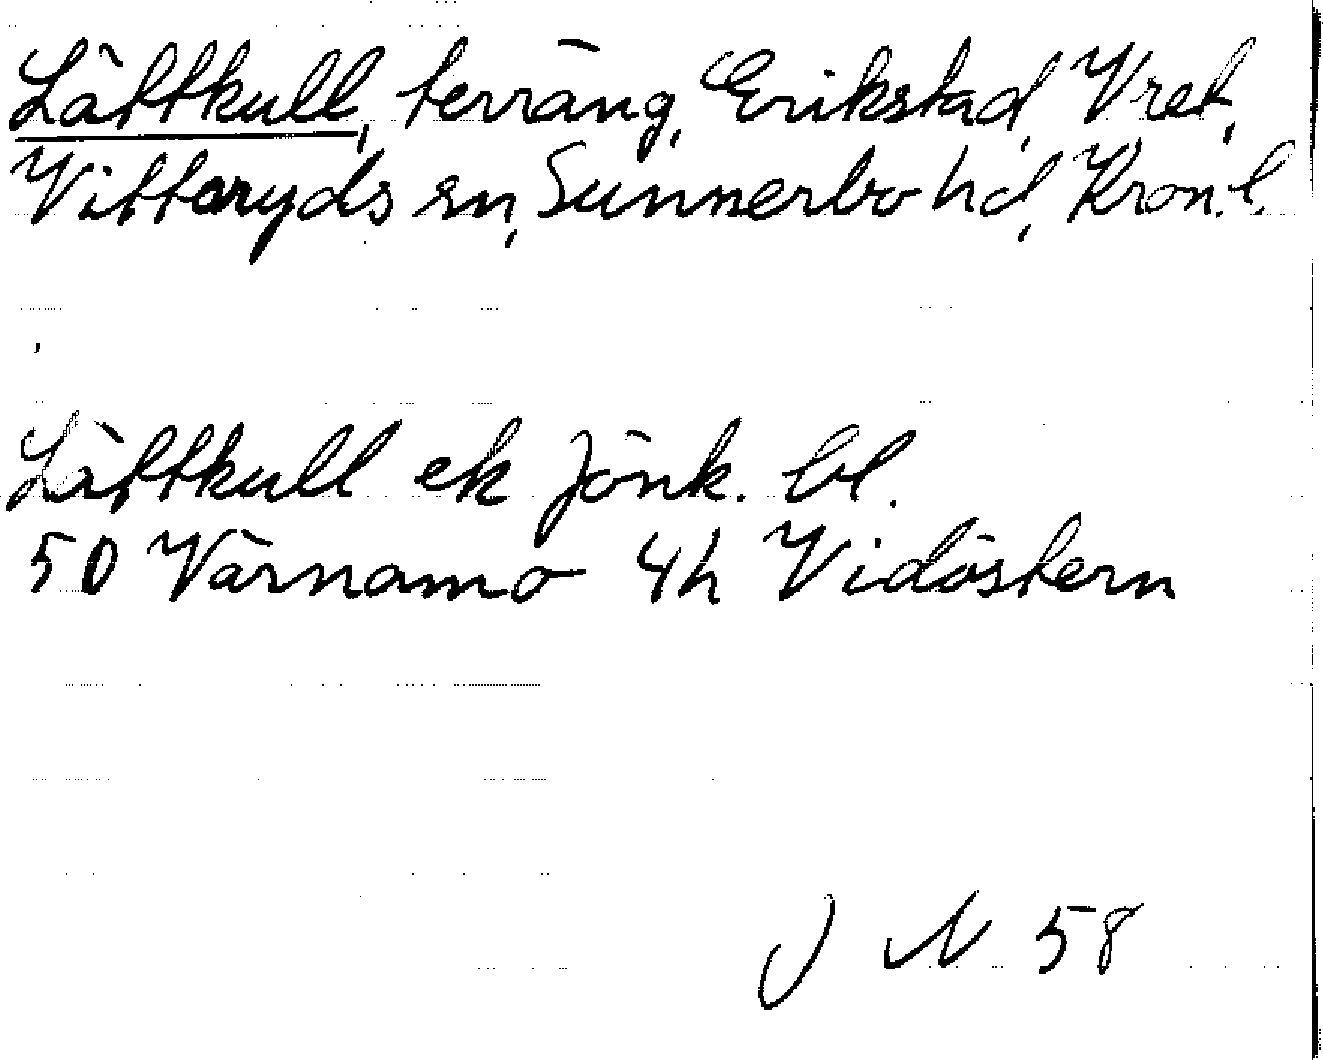 Låftkull, terräng, Erikstad, Vret,
Vittaryds sn, Sunnerbo hd, Kron. l.
Låftkull ek Jönk. bl.
50 Värnamo 4h Vidöstern
J N 58